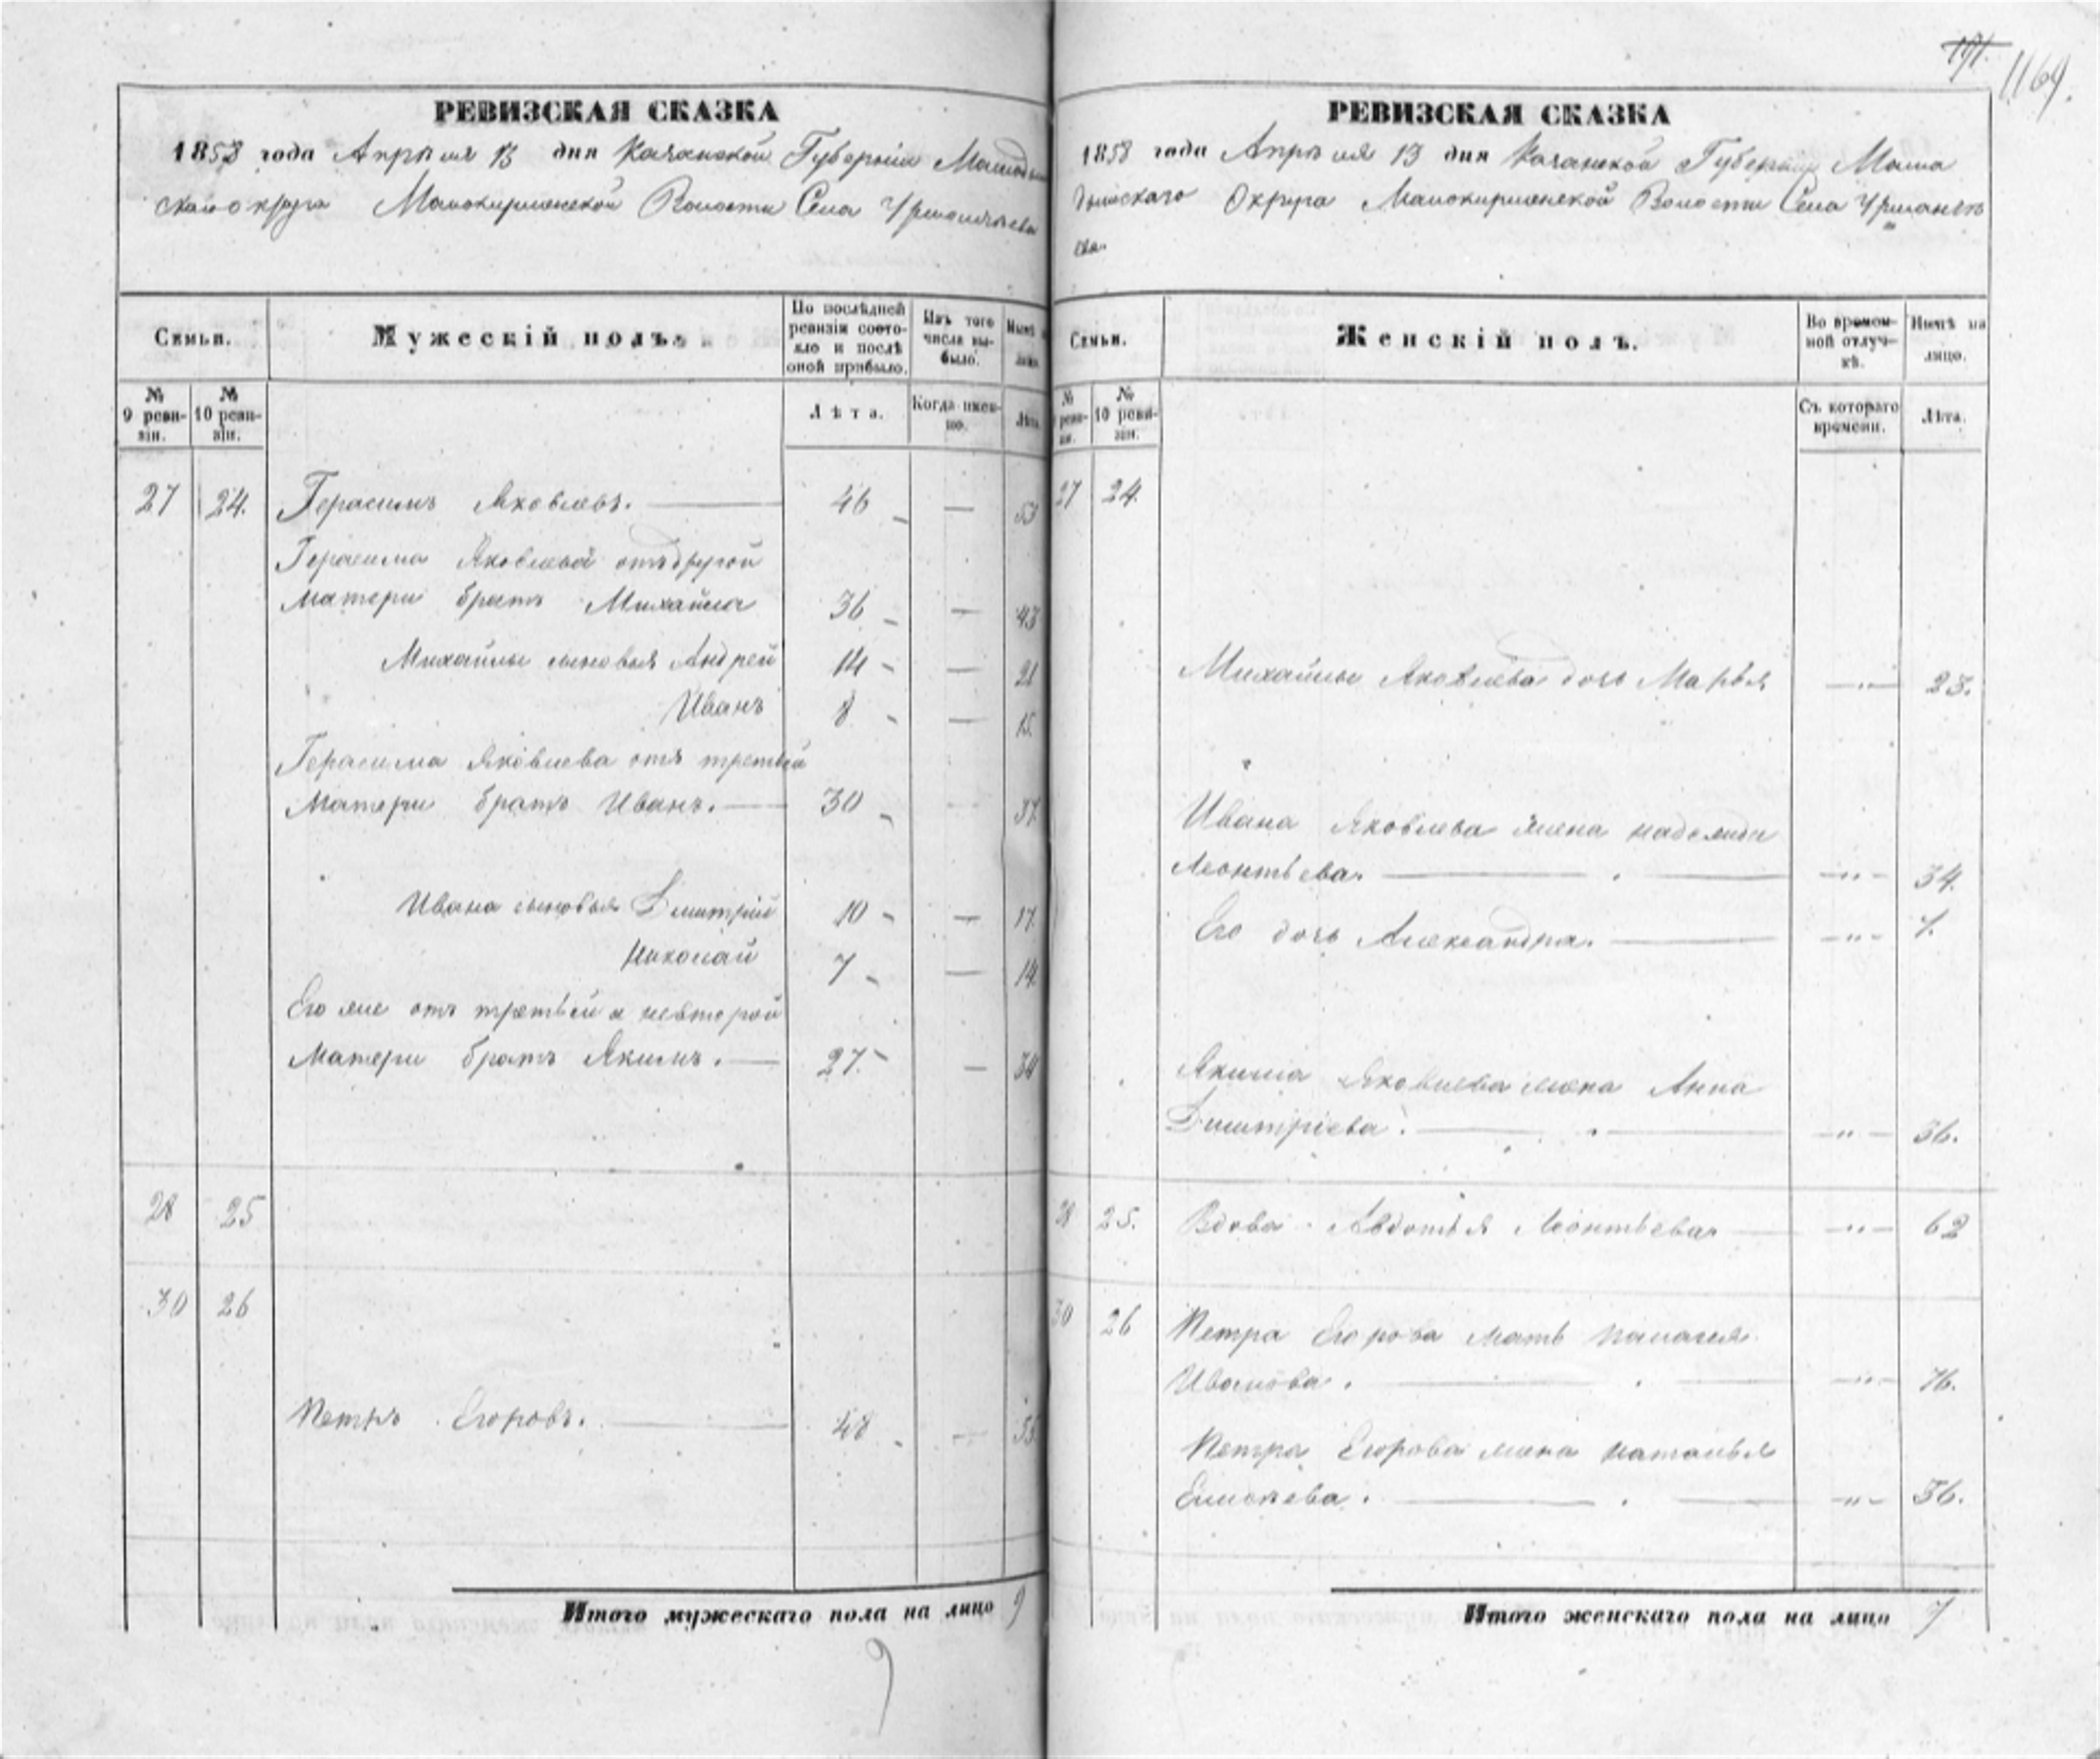 191.
1164.
РЕВИЗСКАЯ СКАЗКА
1858 года Апрѣля 13 дня Казанской Губерніи Мамадыш
скаго округа Малокирменской Волости Села Урманчеева
Семьи.
Мужескій полъ.
По послѣдней ревизіи состояло и послѣ оной прибыло.
Изъ того числа выбыло.
Нынѣ на лицо.
№ 9 ревизіи.
№ 10 ревизіи.
Лѣта.
Когда именно.
Лѣта.
27 24. Герасимъ Яковлевъ. 46 — 53
Герасима Яковлева отъ другой
матери братъ Михайла 36 — 43
Михайлы сыновья Андрей 14 — 21
Иванъ 8 — 15.
Герасима Яковлева отъ третьей
Матери братъ Иванъ. 30 — 37.
Ивана сыновья Дмитрій 10 — 17.
Николай 7 — 14.
Его же отъ третьей а не второй
Матери братъ Якимъ. 27. — 34
28 25
30 26
Петръ Егоровъ. 48 — 55.
Итого мужескаго пола на лицо 9
9
РЕВИЗСКАЯ СКАЗКА
1858 года Апрѣля 13 дня Казанской Губерніи Мама
дышскаго Округа Малокирменской Волости Села Урманчѣ
ева
Семьи.
Женскій полъ.
Во временной отлучкѣ.
Нынѣ на лицо.
№ ревизіи.
№ 10 ревизіи.
Съ котораго времени.
Лѣта.
27 24.
Михайлы Яковлева дочь Марья — " — 23.
Ивана Яковлева жена
Леонтьева. — " — 34.
Его дочь Александра. — " — 7.
Якима Яковлева жена Анна
Дмитріева. — " — 36.
28 25. Вдова Авдотья Леонтьева — " — 62
30 26 Петра Егорова мать Палагея
Иванова. — " — 76.
Петра Егорова жена Наталья
— " — 56.
Итого женскаго пола на лицо 7